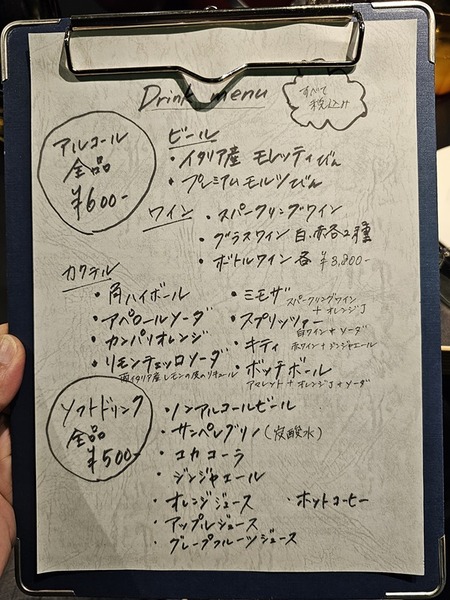 Drink menu
すべて
税込み
アルコール
全品
¥600-
ビール
・イタリア産 モレッティびん
・プレミアムモルツびん
ワイン
・スパークリングワイン
・グラスワイン 白・赤各2種
・ボトルワイン 各 ¥3,800-
カクテル
・角ハイボール
・アペロールソーダ
・カンパリオレンジ
・リモンチェッロソーダ
南イタリア産レモンの皮のリキュール
・ミモザ スパークリングワイン
+オレンジJ
・スプリッツァー
白ワイン+ソーダ
・キティ 赤ワイン+ジンジャエール
・ボッチボール
アマレット+オレンジJ+ソーダ
ソフトドリンク
全品
¥500-
・ノンアルコールビール
・サンペレグリノ(炭酸水)
・コカコーラ
・ジンジャエール
・オレンジジュース ・ホットコーヒー
・アップルジュース
・グレープフルーツジュース